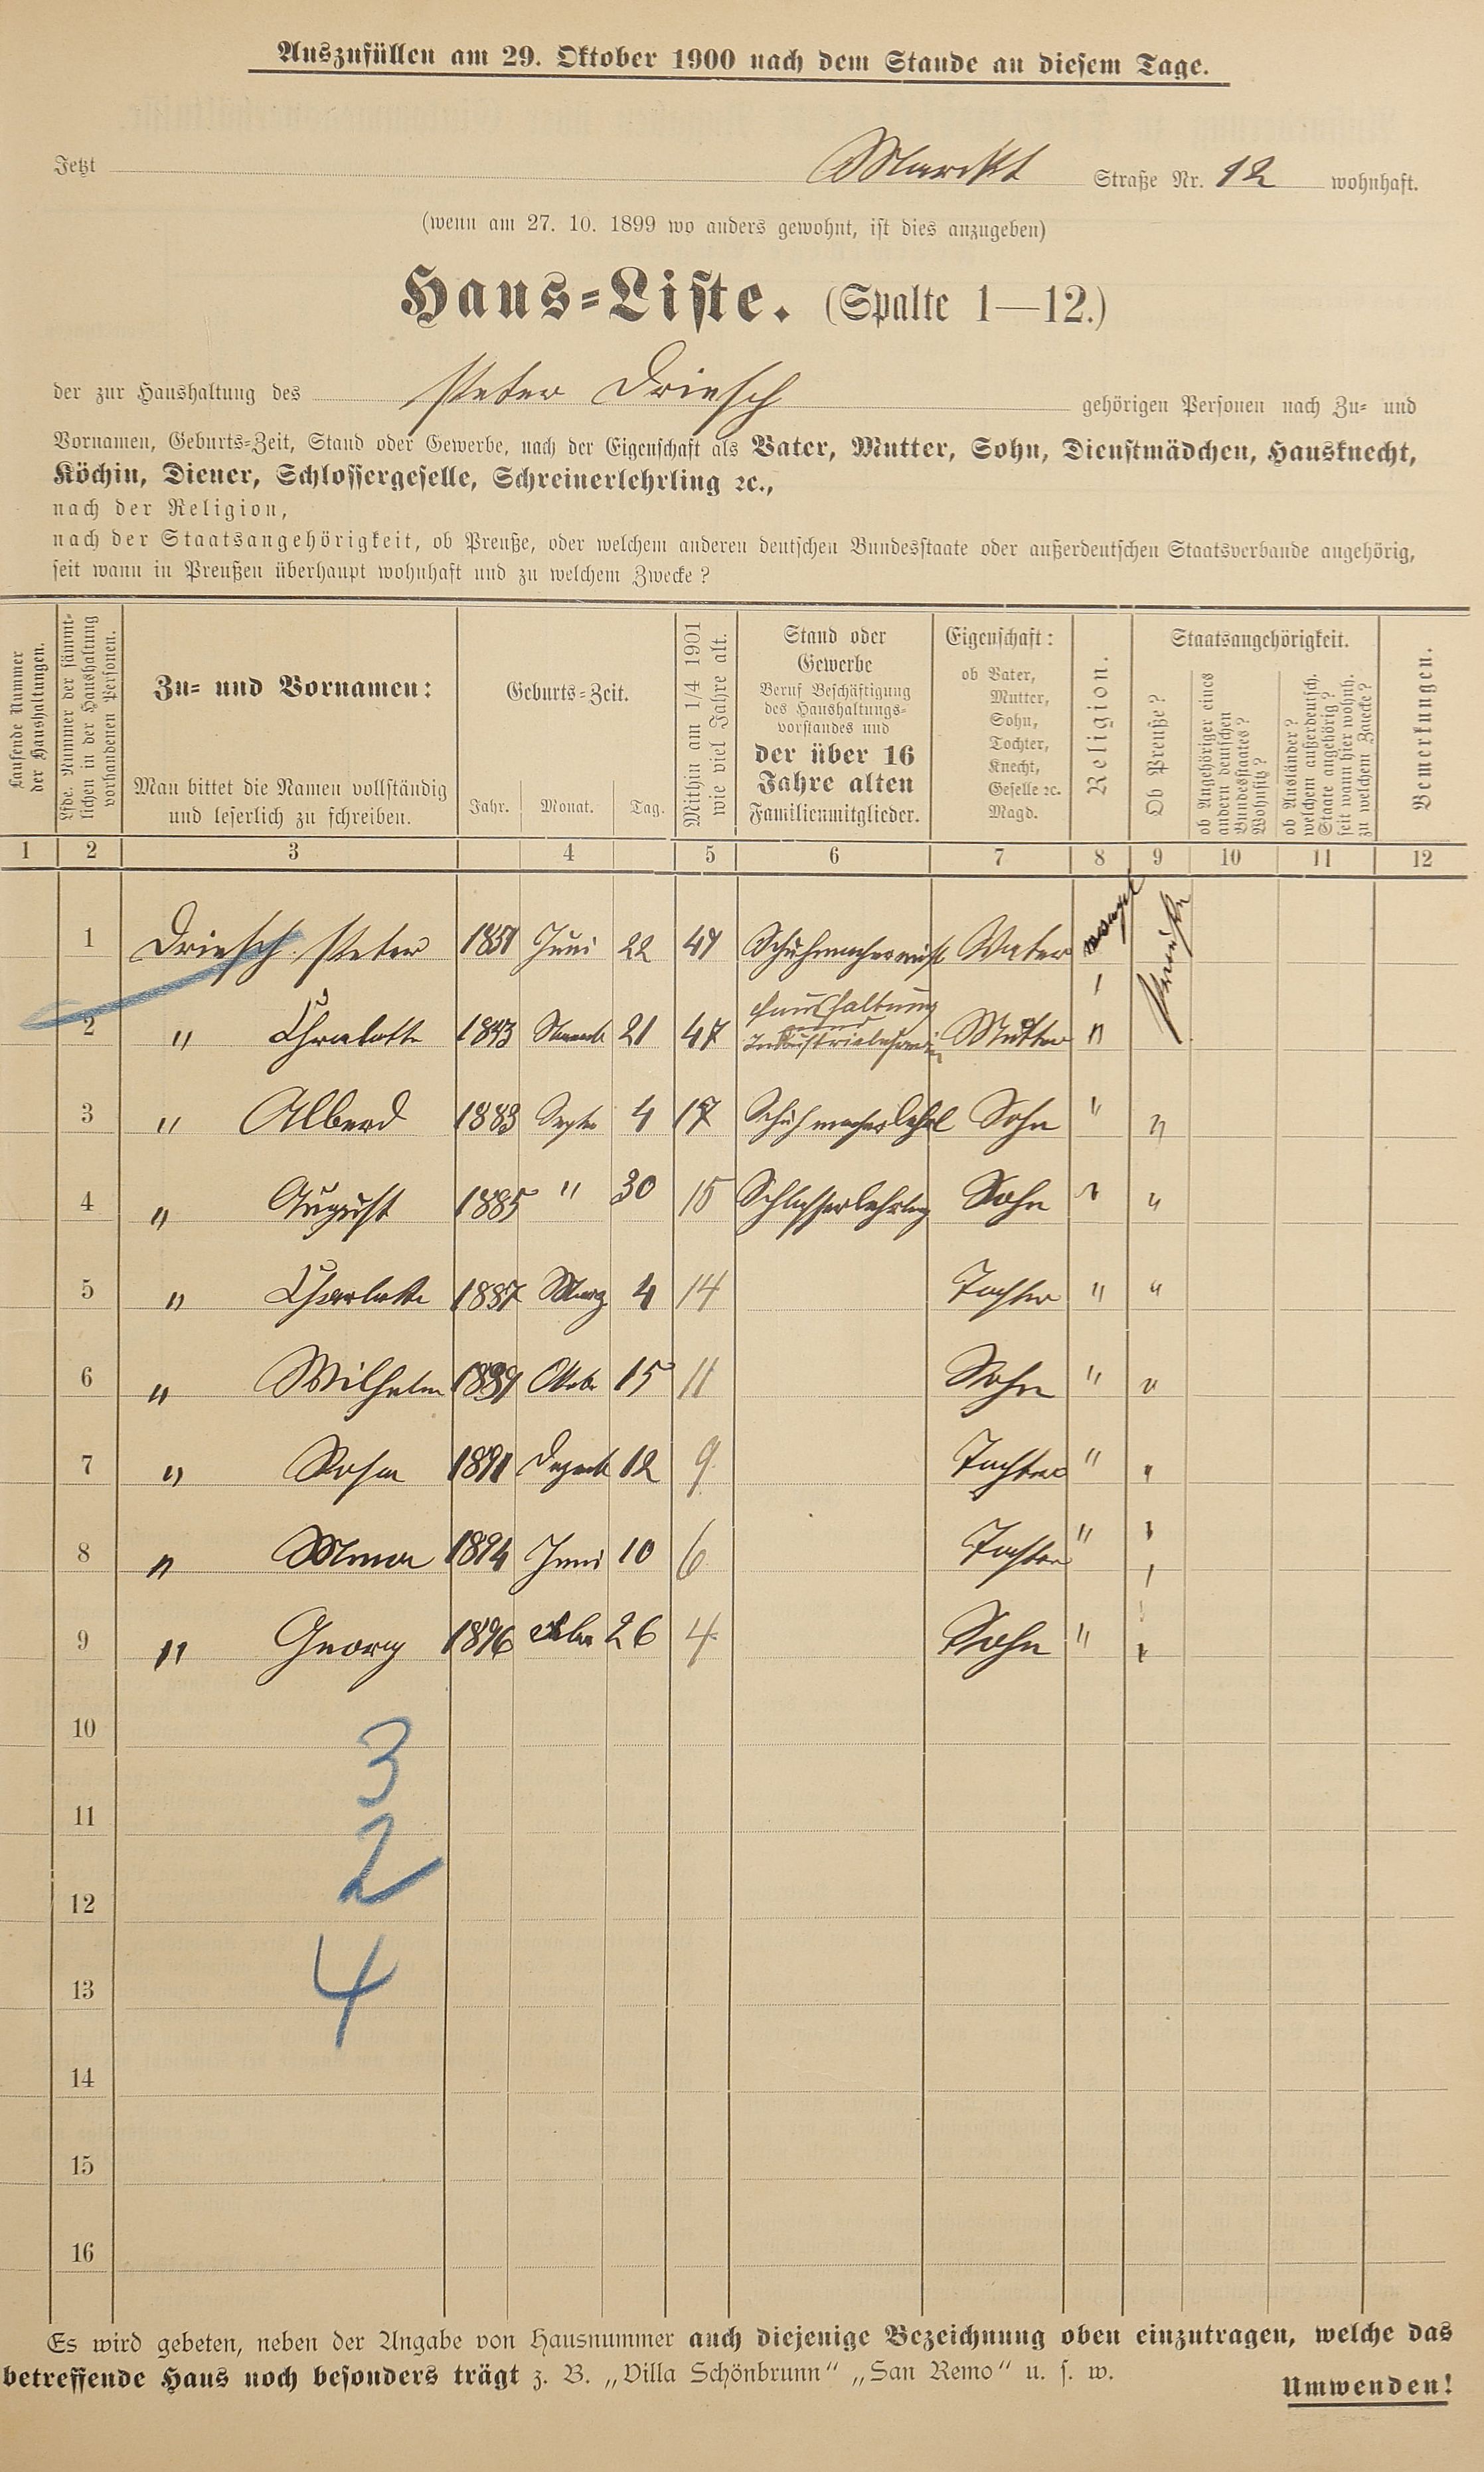 Auszufüllen am 29. Oktober 1900 nach dem Stande an diesem Tage.
Jetzt Marckt Straße Nr. 12 wohnhaft.
(wenn am 27. 10. 1899 wo anders gewohnt, ist dies anzugeben)
Haus-Liste. (Spalte 1—12.)
der zur Haushaltung des Peter Driesch gehörigen Personen nach Zu- und
Vornamen, Geburts-Zeit, Stand oder Gewerbe, nach der Eigenschaft als Vater, Mutter, Sohn, Dienstmädchen, Hausknecht,
Köchin, Diener, Schlossergeselle, Schreinerlehrling ꝛc.,
nach der Religion,
nach der Staatsangehörigkeit, ob Preuße, oder welchem anderen deutschen Bundesstaate oder außerdeutschen Staatsverbande angehörig,
seit wann in Preußen überhaupt wohnhaft und zu welchem Zwecke?
Laufende Nummer der Haushaltungen.
Lfde. Nummer der sämmtlichen in der Haushaltung vorhandenen Personen.
Zu- und Vornamen:
Man bittet die Namen vollständig
und leserlich zu schreiben.
Geburts-Zeit.
Jahr. Monat. Tag.
Mithin am 1/4 1901 wie viel Jahre alt.
Stand oder
Gewerbe
Beruf Beschäftigung
des Haushaltungs-
vorstandes und
der über 16
Jahre alten
Familienmitglieder.
Eigenschaft:
ob Vater,
Mutter,
Sohn,
Tochter,
Knecht,
Geselle ꝛc.
Magd.
Religion.
Staatsangehörigkeit.
Ob Preuße?
ob Angehöriger eines andern deutschen Bundesstaates? Wohnsitz?
ob Ausländer? welchem außerdeutsch. Staate angehörig? seit wann hier wohnh. zu welchem Zwecke?
Bemerkungen.
1 2 3 4 5 6 7 8 9 10 11 12
1 Driesch Peter 1851 Juni 22 49 Schuhmachermist Vater
2 " 21 47 Haushaltung und Mutter "
3 " Alberd 1883 Septe 4 17 Sohn " "
4 " August 1885 " 30 15 Schlosserlehrlng Sohn " "
5 " Charlotte 1887 März 4 14 Tochter " "
6 " Wilhelm 1889 Oktob 15 11 Sohn " "
7 " Rosa 1891 Dezemb 12 9 Tochter " "
8 " 1894 Juni 10 6 Tochter " "
9 " Georg 1896 26 4 Sohn " "
10
3
11
2
12
4
13
14
15
16
Es wird gebeten, neben der Angabe von Hausnummer auch diejenige Bezeichnung oben einzutragen, welche das
betreffende Haus noch besonders trägt z. B. „Villa Schönbrunn“ „San Remo“ u. s. w.
Umwenden!